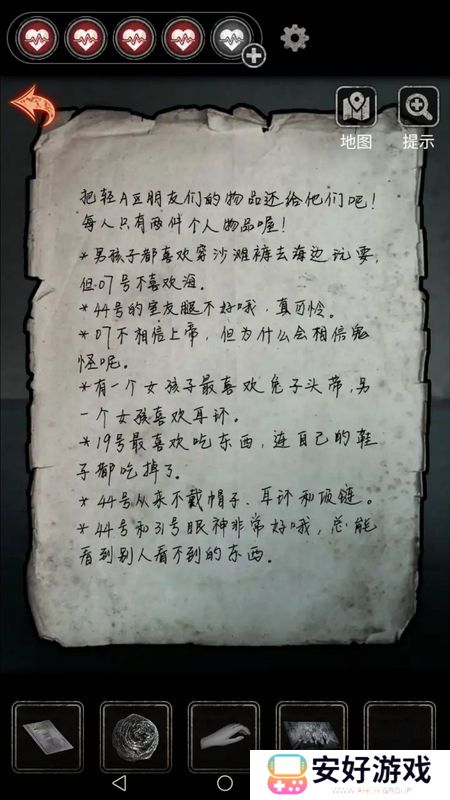 地图
提示
把轻A豆朋友们的物品还给他们吧！
每人只有两件个人物品喔！
*男孩子都喜欢穿沙滩裤去海边玩耍，
但07号不喜欢海。
*44号的室友腿不好哦，真可怜。
*07不相信上帝，但为什么会相信鬼
怪呢。
*有一个女孩子最喜欢兔子头带，另
一个女孩喜欢耳环。
*19号最喜欢吃东西，连自己的鞋
子都吃掉了。
*44号从来不戴帽子、耳环和项链。
*44号和31号眼神非常好哦，总能
看到别人看不到的东西。
安好游戏